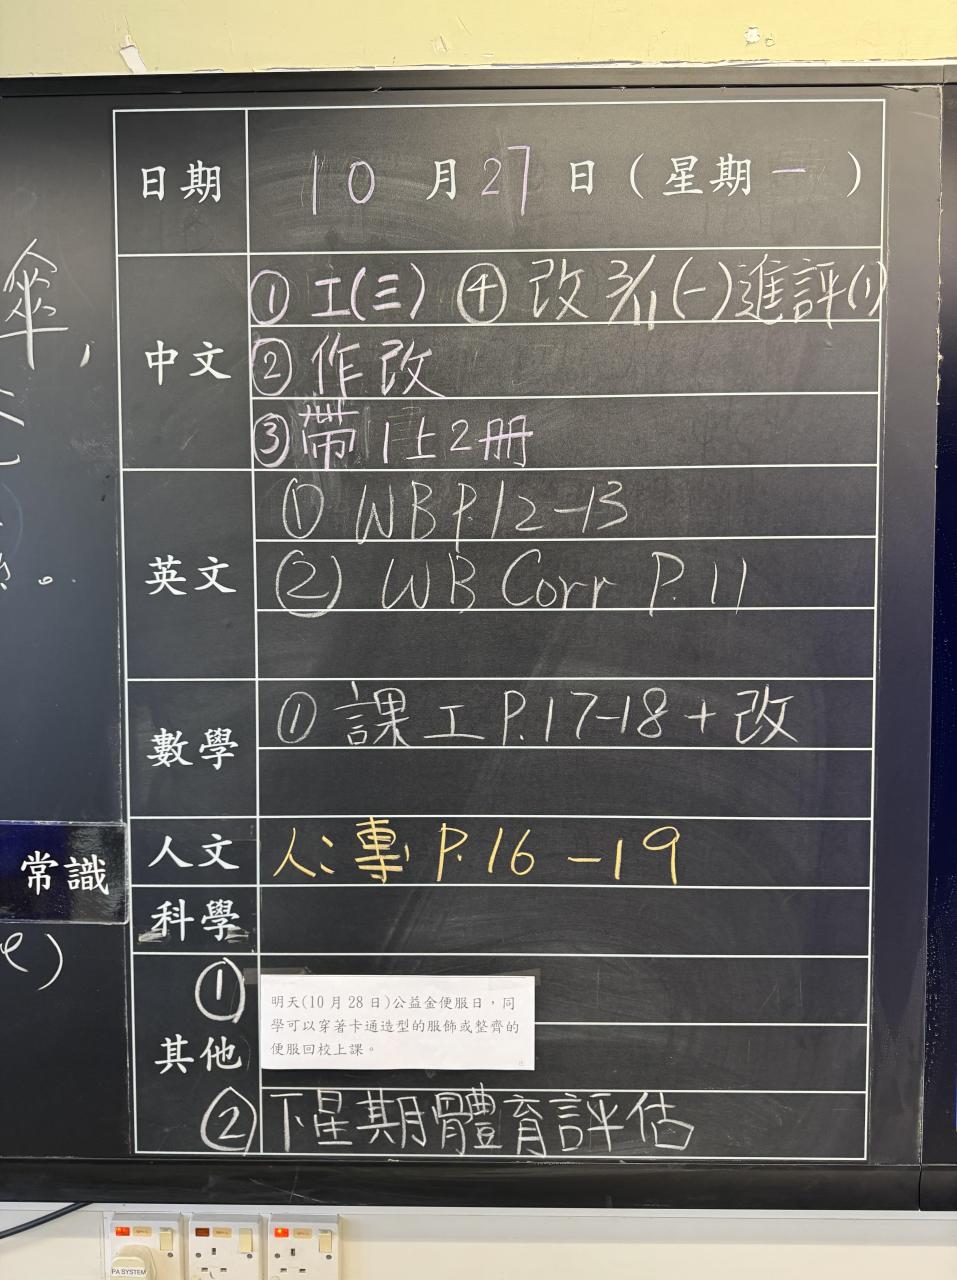 日期 10 月 27 日 ( 星期 一 )
中文
① 工(三) ④ 改 3/11 (一) 進評(1)
② 作改
③ 帶 1上2冊
英文
① WB P.12-13
② WB Corr P.11
數學
① 課工 P.17-18 + 改
人文 人:專 P.16-19
常識
科學
其他
①
明天(10 月 28 日)公益金便服日，同
學可以穿著卡通造型的服飾或整齊的
便服回校上課。
② 下星期體育評估
傘，
PA SYSTEM